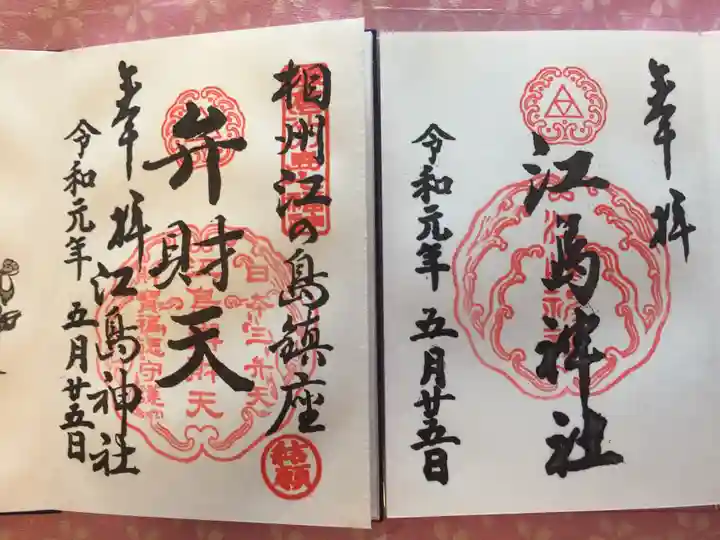 奉拝
江島神社
令和元年 五月廿五日
相州江の島鎮座
弁財天
奉拝 江島神社
令和元年 五月廿五日
結願
日本三弁天